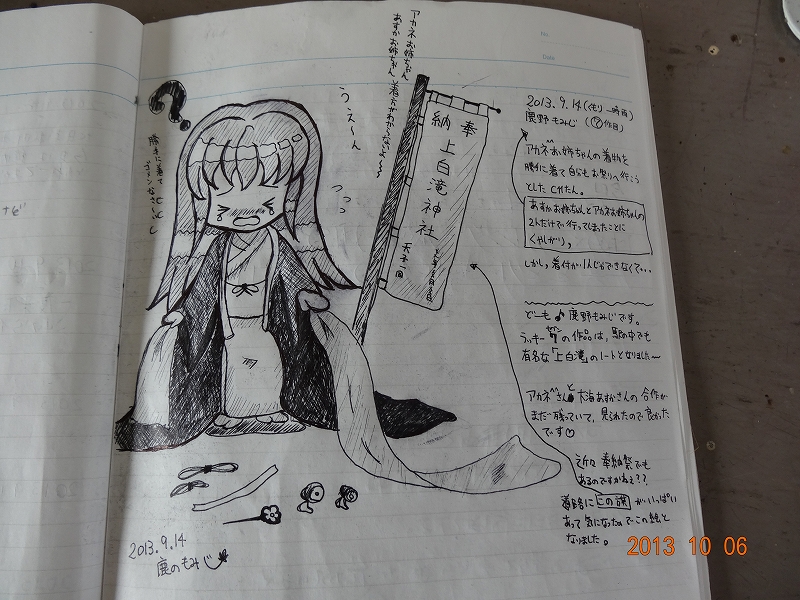 アカネお姉ちゃん
あすかお姉ちゃん、着方がわからないよ〜〜
うえ〜ん
勝手に着て
ゴメンなさ〜い
奉
納 上白滝神社
氏子一同
2013.9.14
鹿のもみじ
No.
Date
2013.9.14(くもり 一時雨)
鹿野もみじ (⑦作目)
アカネお姉ちゃんの着物を
勝手に着て自らもお祭りへ行こう
としたCたん。
あすかお姉ちゃんとアカネお姉ちゃんの
2人だけで行ってしまったことに
くやしがり,
しかし、着付が1人じゃできなくて...
どーも♪鹿野もみじです。
ラッキー7の作品は、駅の中でも
有名な「上白滝」のノートとなりました〜
アカネさんと大海あすかさんの合作が
まだ残っていて、見られたので良かった
です♡
近々奉納祭でも
あるのですかねぇ??
道路に上の旗がいっぱい
あって気になったのでこの絵と
なりました。
2013 10 06